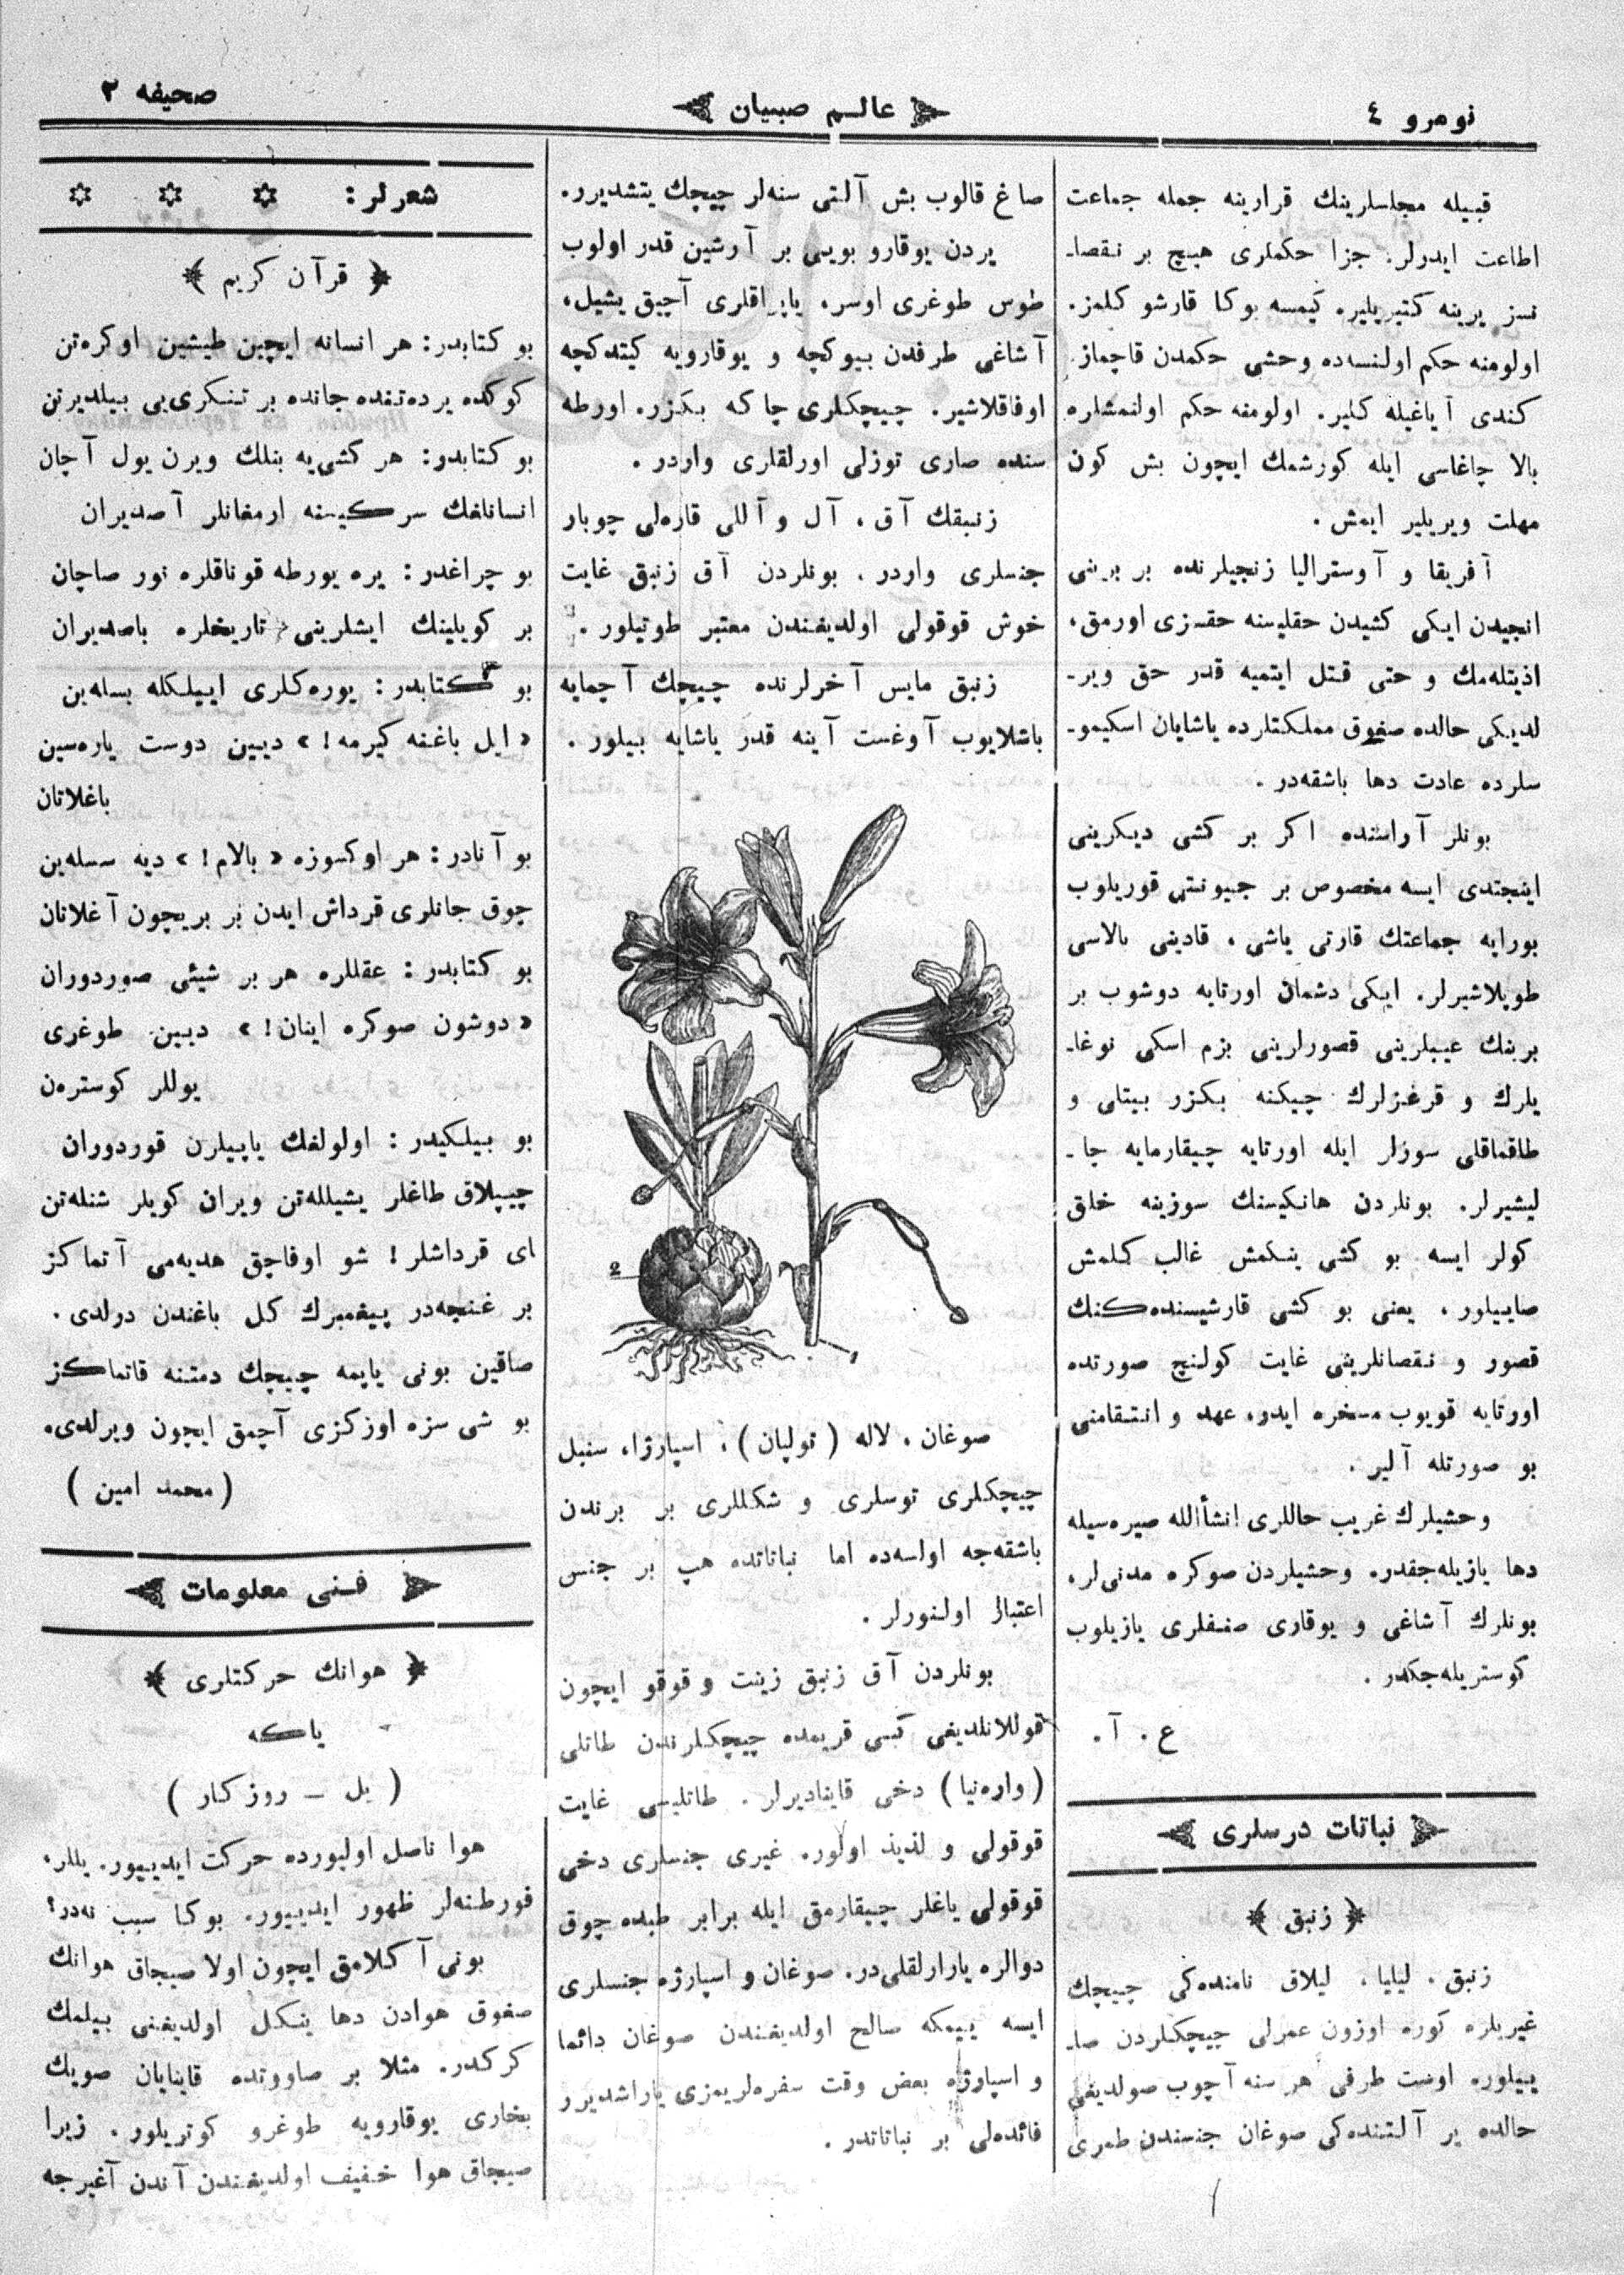 نومرو ٤
عالم صبيان
صحيفه ٢
قبيله مجلسلرينك قرارينه جمله جماعت
اطاعت ايدرلر. جزا حكملرى هيچ بر نقصا-
نسز يرينه كتيريلير. كيمسه بوكا قارشو كلمز.
اولومنه حكم اولنسه‌ده وحشى حكمدن قاچماز.
كندى آياغيله كلير. اولومنه حكم اولنمشلره
بالا چاغاسى ايله كورشمك ايچون بش كون
مهلت ويريلير ايمش.
آفريقا و آوستراليا زنجيلرنده بر برينى
انجيدن ايكى كشيدن حقليسنه حقسزى اورمق،
اذيتله‌مك و حتى قتل ايتميه قدر حق وير-
لديكى حالده صغوق مملكتلرده ياشايان اسكيمو-
سلرده عادت دها باشقه‌در.
بونلر آراسنده اكر بر كشى ديكرينى
اينجتدى ايسه مخصوص بر جيونتى قوريلوب
بورايه جماعتك قارتى ياشى، قادينى بالاسى
طوپلاشيرلر. ايكى دشمان اورتايه دوشوب بر
برينك عيبلرينى قصورلرينى بزم اسكى نوغا-
يلرك و قرغزلرك چيكنه بكزر بيتلى و
طاقماقلى سوزلر ايله اورتايه چيقارمايه چا-
ليشيرلر. بونلردن هانكيسنك سوزينه خلق
كولر ايسه بو كشى ينكمش غالب كلمش
صاييلور. يعنى بو كشى قارشيسنده‌كنك
قصور و نقصانلرينى غايت كولنچ صورتده
اورتايه قويوب مسخره ايدو، عهد و انتقامنى
بو صورتله آلير.
وحشيلرك غريب حاللرى انشأالله صيره‌سيله
دها يازيله‌جقدر. وحشيلردن صوكره مدنى‌لر،
بونلرك آشاغى و يوقارى صنفلرى يازيلوب
كوستريله‌جكدر.
ع. آ.
نباتات درسلرى
﴿ زنبق ﴾
زنبق، ليليا، ليلاق نامنده‌كى چيچك
غيريلره كوره اوزون عمرلى چيچكلردن صا-
ييلور. اوست طرفى هر سنه آچوب صولديغى
حالده ير آلتنده‌كى صوغان جنسندن طمرى
صاغ قالوب بش آلتى سنه‌لر چيچك يتشديرر.
يردن يوقارو بويى بر آرشين قدر اولوب
طوس طوغرى اوسر. ياپراقلرى آچيق يشيل،
آشاغى طرفدن بيوكچه و يوقارويه كيتدكچه
اوفاقلاشير. چيچكلرى چاكه بكزر. اورطه
سنده صارى توزلى اورلقلرى واردر.
زنبقك آق، آل و آللى قاره‌لى چوبار
جنسلرى واردر. بونلردن آق زنبق غايت
خوش قوقولى اولديغندن معتبر طوتيلور.
زنبق مايس آخرلرنده چيچك آچمايه
باشلايوب آوغست آينه قدر ياشايه بيلور.
2
1
صوغان، لاله (تولپان)، اسپارژا، سنبل
چيچكلرى توسلرى و شكللرى بر برندن
باشقه‌جه اولسه‌ده اما نباتاتده هپ بر جنس
اعتبار اولنورلر.
بونلردن آق زنبق زينت و قوقو ايچون
قوللانلديغى كبى قريمده چيچكلرندن طاتلى
(واره‌نيا) دخى قايناديرلر. طاتليسى غايت
قوقولى و لذيذ اولور. غيرى جنسلرى دخى
قوقولى ياغلر چيقارمق ايله برابر طبده چوق
دوالره يارارلقلى‌در. صوغان و اسپارژه جنسلرى
ايسه ييمكه صالح اولديغندن صوغان دائما
و اسپارژه بعض وقت سفره‌لريمزى ياراشديرر
فائده‌لى بر نباتاتدر.
شعرلر:
﴿ قرآن كريم ﴾
بو كتابدر: هر انسانه ايچين طيشين اوكره‌تن
كوكده يرده‌تنده جانده بر تنكرى‌يى بيلديرتن
بو كتابدر: هر كشى‌يه بنلك ويرن يول آچان
انسانلغك سركيسنه ارمغانلر آصديران
بو چراغدر: يره يورطه قوناقلره نور صاچان
بر كويلينك ايشلرينى تاريخلره باصديران
بو كتابدر: يوره‌كلرى اييلكله بسله‌ين
«ايل باغنه كيرمه!» ديين دوست ياره‌سين
باغلاتان
بو آنادر: هر اوكسوزه «بالام!» ديه سسله‌ين
چوق جانلرى قرداش ايدن بر بريچون آغلاتان
بو كتابدر: عقللره هر بر شيئى صوردوران
«دوشون صوكره اينان!» ديين طوغرى
يوللر كوستره‌ن
بو بيلكيدر: اولولغك ياپيلرن قوردوران
چيپلاق طاغلر يشيلله‌تن ويران كويلر شنله‌تن
اى قرداشلر! شو اوفاجق هديه‌مى آتماكز
بر غنچه‌در پيغمبرك كل باغندن درلدى.
صاقين بونى يايمه چيچك دمتنه قاتماكز
بو شى سزه اوزكزى آچمق ايچون ويرلدى.
(محمد امين)
فنى معلومات
﴿ هوانك حركتلرى ﴾
ياكه
(يل – روزكار)
هوا ناصل اوليورده حركت ايدييور. يللر،
فورطنه‌لر ظهور ايدييور. بوكا سبب نه‌در؟
بونى آكلامق ايچون اولا صيجاق هوانك
صغوق هوادن دها ينكل اولديغنى بيلمك
كركدر. مثلا بر صاووتده قاينايان صويك
بخارى يوقارويه طوغرو كوتريلور. زيرا
صيجاق هوا خفيف اولديغندن آندن آغيرجه